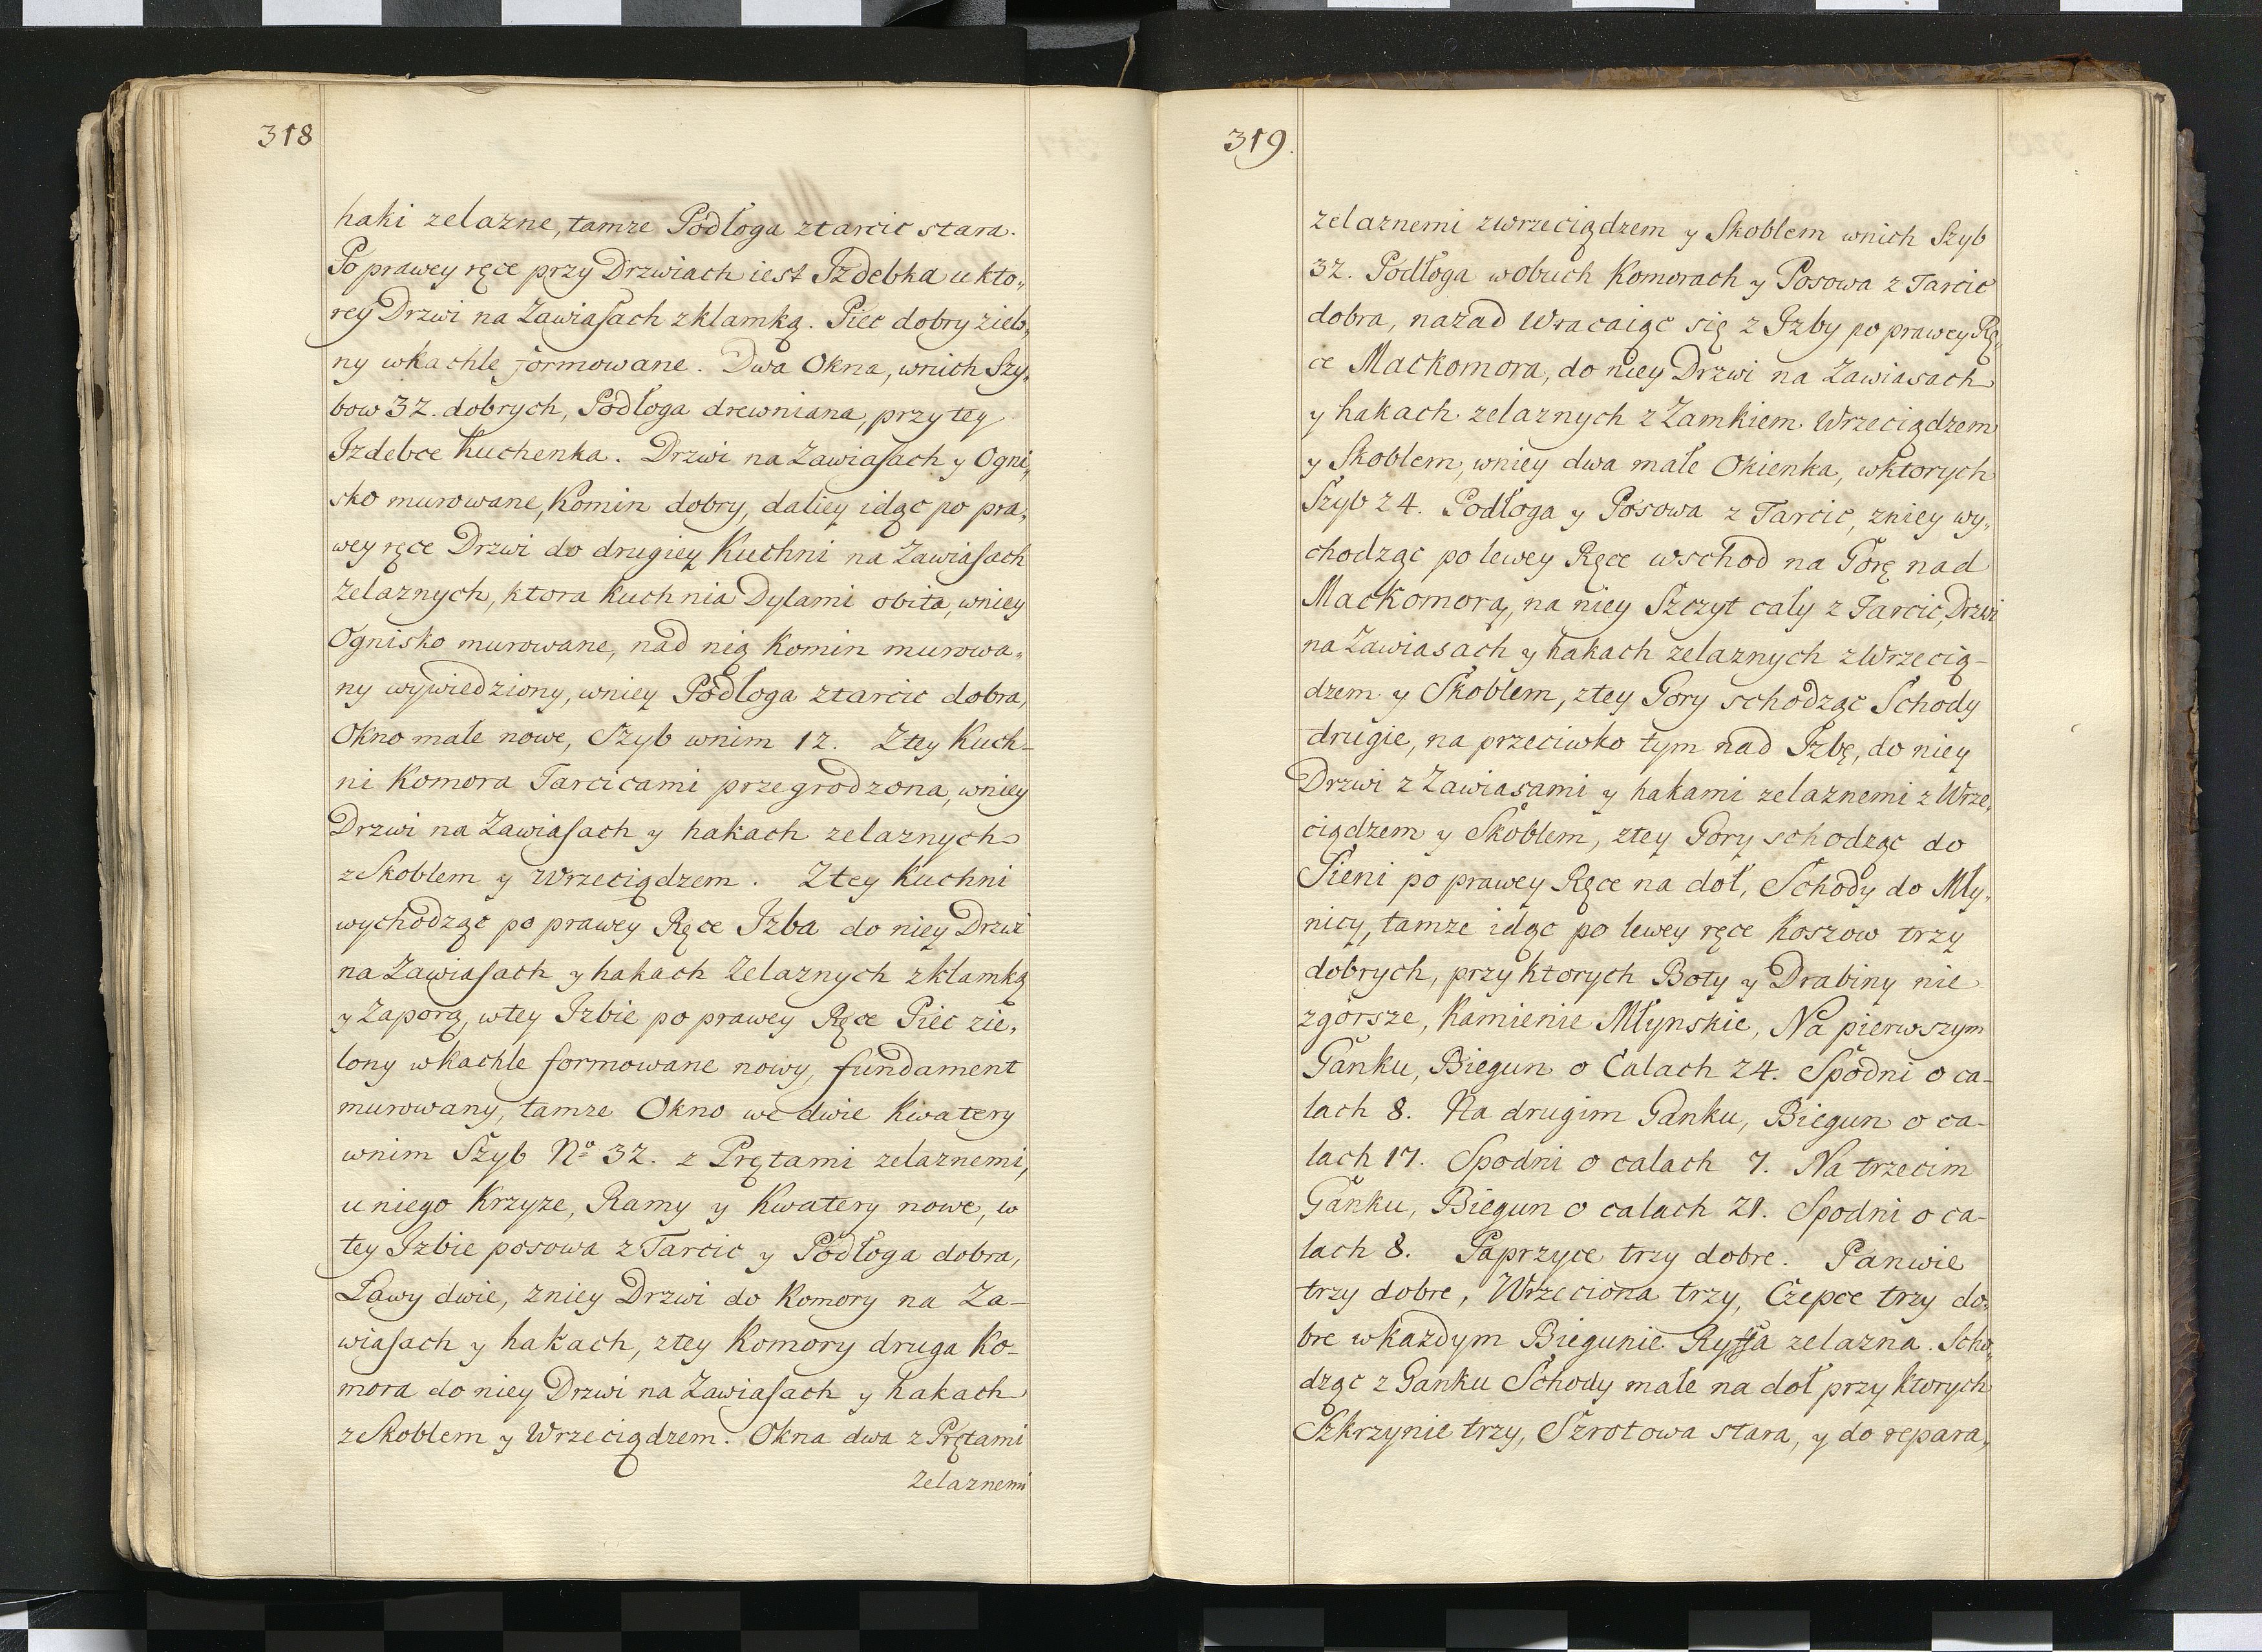 318
haki zelazne, tamze Podłoga ztarcic stara.
Po prawey ręce przy Drzwiach iest Izdebka u kto„
rey Drzwi na Zawiasach zklamką. Piec dobry zielo„
ny wkachle formowane. Dwa Okna, wnich Szy„
bow 32. dobrych, Podłoga drewniana, przy tey
Izdebce Kuchenka. Drzwi na Zawiasach y Ogni„
sko murowane, Komin dobry, daliey idąc po pra„
wey ręce Drzwi do drugiey Kuchni na Zawiasach
Zelaznych, ktora kuchnia Dylami obita, wniey
Ognisko murowane, nad nią Komin murowa„
ny wywiedziony, wniey Podłoga ztarcic dobra,
Okno male nowe, Szyb wnim 12. Ztey Kuch-
ni Komora Tarcicami przegrodzona, wniey
Drzwi na Zawiasach y hakach zelaznych
z Skoblem y Wrzeciądzem. Ztey Kuchni
wychodząc po prawey Ręce Izba do niey Drzwi
na Zawiasach y hakach Zelaznych zklamką
y Zaporą, wtey Izbie po prawey Ręce Piec zie„
lony wkachle formowane nowy, fundament
murowany, tamze Okno we dwie Kwatery
wnim Szyb No 32. z Prętami zelaznemi,
u niego Krzyze, Ramy y Kwatery nowe, w
tey Izbie posowa z Tarcic y Podłoga dobra,
Ławy dwie, zniey Drzwi do Komory na Za-
wiasach y hakach, ztey Komory druga Ko-
mora do niey Drzwi na Zawiasach y hakach
z Skoblem y Wrzeciądzem. Okna dwa z Prętami
Zelaznemi
319.
zelaznemi zwrzeciądzem y Skoblem wnich Szyb
32. Podłoga wobuch Komorach y Posowa z Tarcic
dobra, nazad Wracaiąc się z Izby po prawey Rę„
ce Mackomora, do niey Drzwi na Zawiasach
y hakach zelaznych z Zamkiem Wrzeciądzem
y Skoblem, wniey dwa małe Okienka, wktorych
Szyb 24. Podłoga y Posowa z Tarcic, zniey wy„
chodząc po lewey Ręce wschod na Gorę nad
Mackomorą, na niey Szczyt cały z Tarcic, Drzwi
na Zawiasach y hakach zelaznych z Wrzecią-
dzem y Skoblem, ztey Gory schodząc Schody
drugie, na przeciwko tym nad Izbę, do niey
Drzwi z Zawiasami y hakami zelaznemi z Wrze„
ciądzem y Skoblem, ztey Gory schodząc do
Sieni po prawey Ręce na doł, Schody do Mły„
nicy, tamze idąc po lewey ręce Koszow trzy
dobrych, przy ktorych Boty y Drabiny nie
zgorsze, Kamienie Młynskie, Na pierwszym
Ganku, Biegun o Calach 24. Spodni o ca-
lach 8. Na drugim Ganku, Biegun o ca-
lach 17. Spodni o calach 7. Na trzecim
Ganku, Biegun o calach 21. Spodni o ca-
lach 8. Paprzyce trzy dobre. Panwie
trzy dobre, Wrzeciona trzy, Czepce trzy do„
bre wkazdym Biegunie Ryffa zelazna. Scho„
dząc z Ganku Schody małe na doł przy ktorych
Szkrzynie trzy, Szrotowa stara, y do repara„